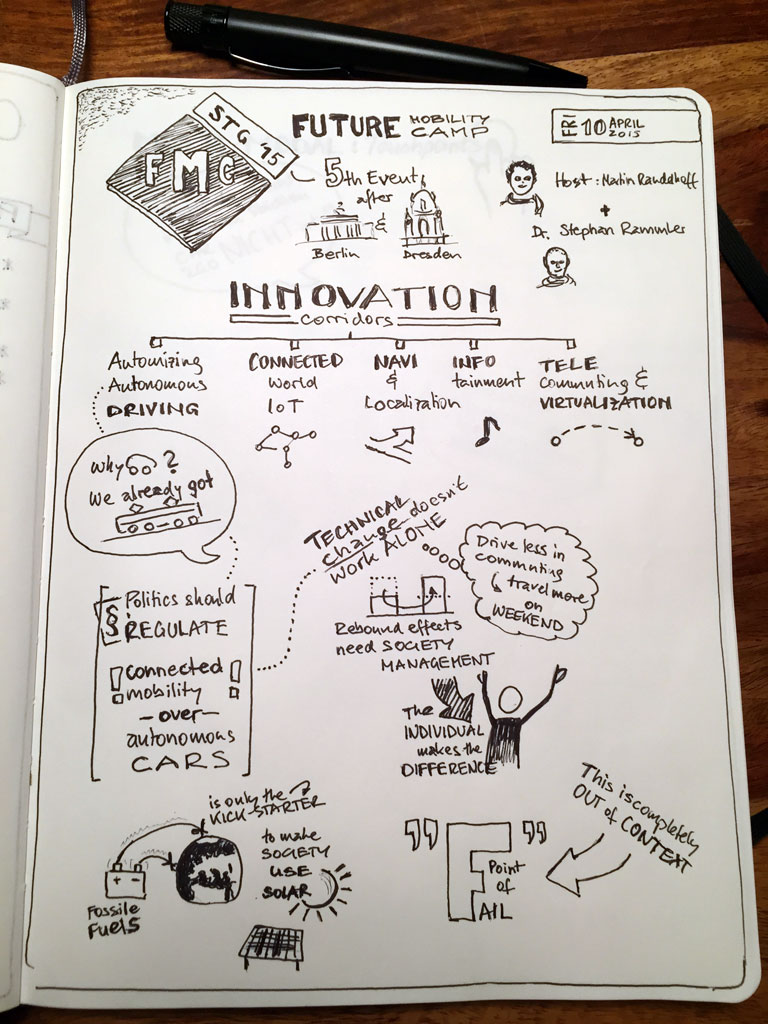 STG '15
FMC
FUTURE MOBILITY CAMP
FRI 10 APRIL 2015
5th Event
after
&
Berlin
Dresden
Host: Martin Randelhoff
+
Dr. Stephan Rammler
INNOVATION
corridors
Automizing
Autonomous
DRIVING
CONNECTED
World
IoT
NAVI
&
Localization
INFO
tainment
TELE
commuting &
VIRTUALIZATION
why ?
we already got
TECHNICAL
change doesn't
work ALONE
Drive less in
commuting
travel more
on
WEEKEND
§ Politics should
REGULATE
! connected !
mobility
- over -
autonomous
CARS
Rebound effects
need SOCIETY
MANAGEMENT
The
INDIVIDUAL
makes the
DIFFERENCE
+ -
Fossile
Fuels
is only the
KICK-STARTER
to make
SOCIETY
USE
SOLAR
" F "
Point
of
AIL
This is completely
OUT of CONTEXT